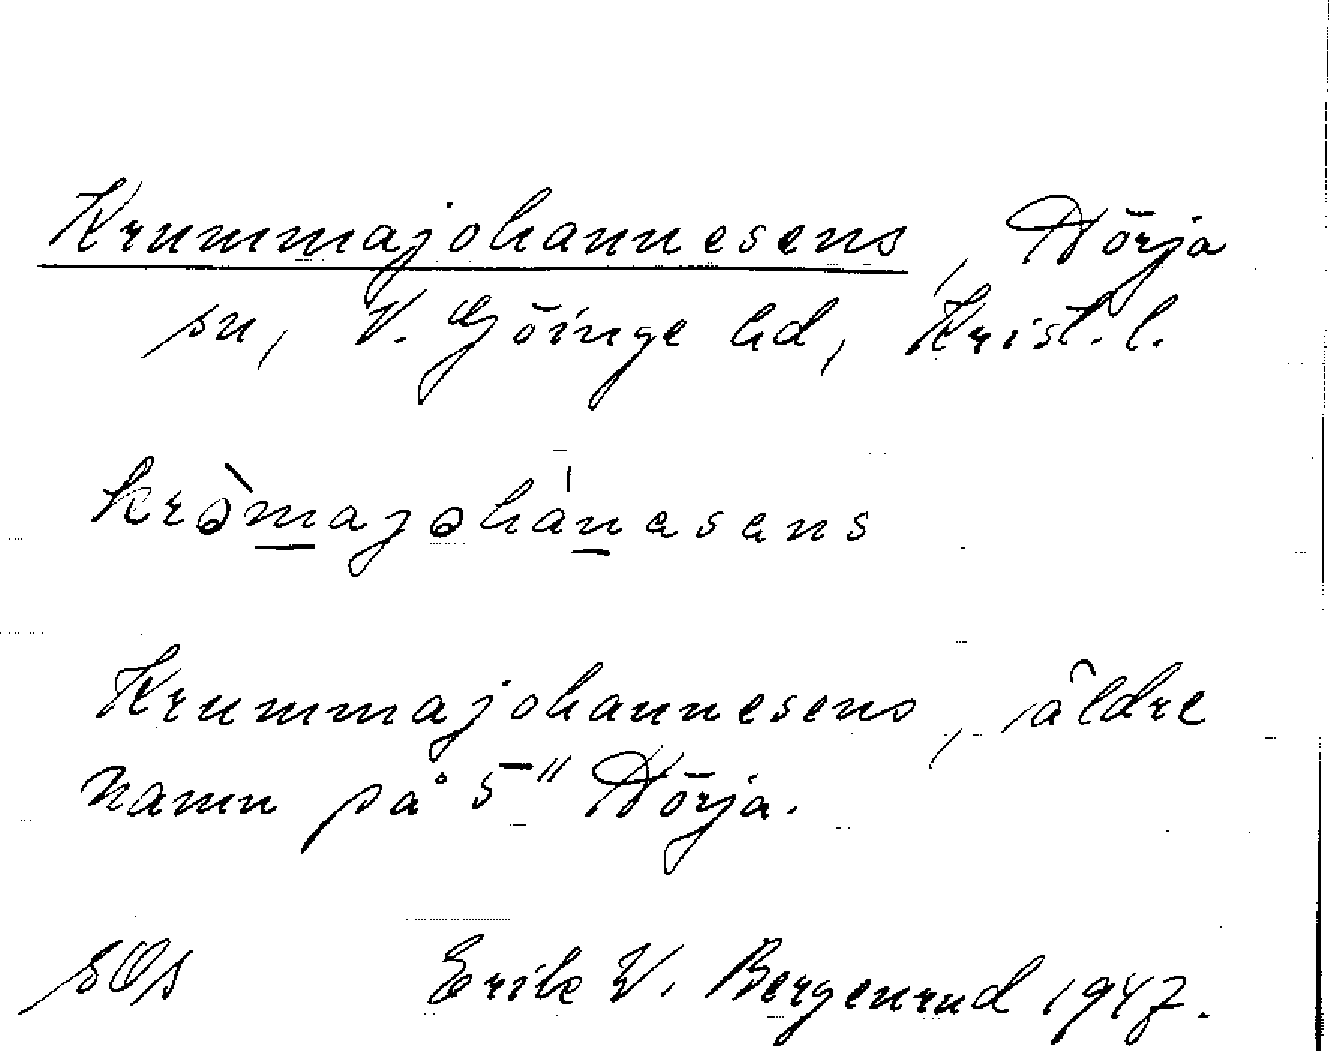 Krummajohannesens, Nörja
sn, V. Göinge hd, Krist. l.
kròmajohánesens
Krummajohannesens, äldre
namn på 5" Nörja.
sOs Erik W. Bergenrud 1947.